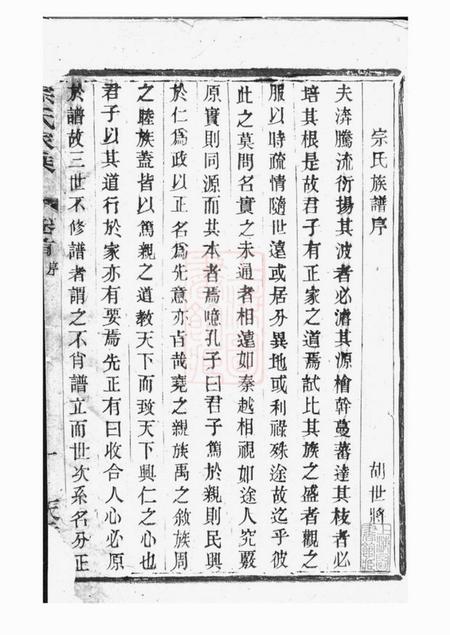 宗氏族譜序
胡世將
夫渀騰流衍揚其波者必濬其源橧幹蔓蕃達其枝者必
培其根是故君子有正家之道焉試比其族之盛者觀之
服以時疏情隨世遠或居分異地或利祿殊途故迄乎彼
此之莫問名實之未通者相遠如秦越相視如途人究覈
原實則同源而其本者焉噫孔子曰君子篤於親則民興
於仁為政以正名為先意亦古哉堯之親族禹之敘族周
之睦族蓋皆以篤親之道教天下而致天下興仁之心也
君子以其道行於家亦有要焉先正有曰收合人心必原
於譜故三世不修譜者謂之不肖譜立而世次系名分正
宗氏家乘
卷首
序
一